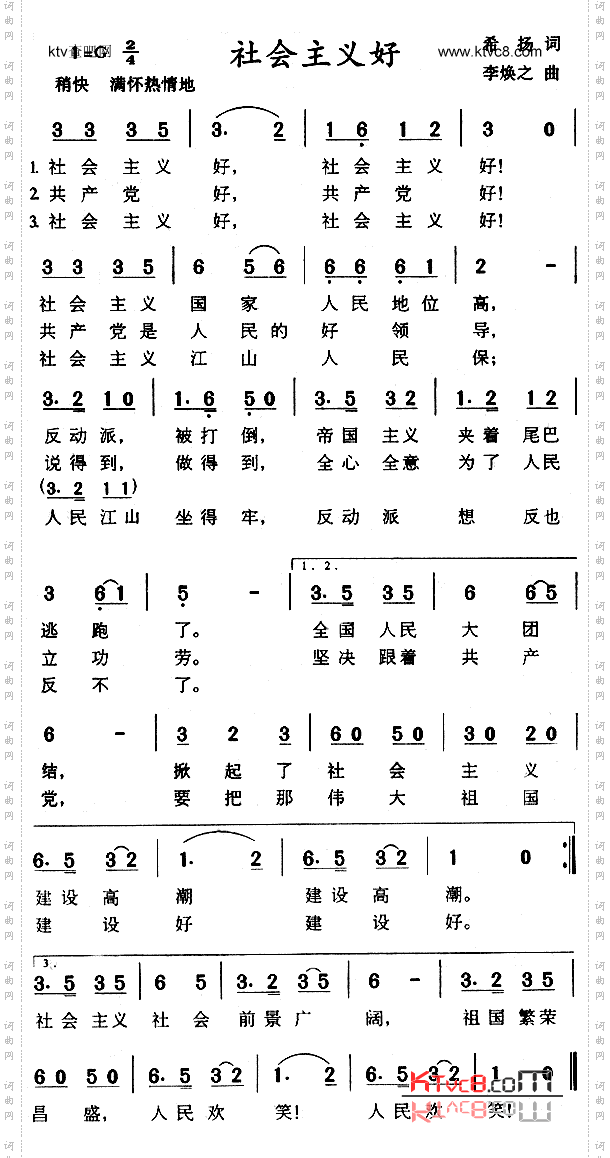 ktv查吧网 1=G 2/4 社会主义好 www.ktvc8.com 希扬 词
稍快 满怀热情地 李焕之 曲
3 3 3 5 | 3. 2 | 1 6 1 2 | 3 0 |
1. 社会 主义 好, 社会 主义 好!
2. 共产 党 好, 共产 党 好!
3. 社会 主义 好, 社会 主义 好!
3 3 3 5 | 6 5 6 | 6 6 6 1 | 2 - |
社会 主义 国 家 人民 地位 高,
共产 党是 人 民的 好 领 导,
社会 主义 江 山 人 民 保;
3. 2 1 0 | 1. 6 5 0 | 3. 5 3 2 | 1. 2 1 2 |
反动派, 被打倒, 帝国 主义 夹着 尾巴
说得到, 做得到, 全心 全意 为了 人民
(3. 2 1 1)
人民 江山 坐得 牢, 反动 派 想 反也
1. 2.
3 6 1 | 5. - | 3. 5 3 5 | 6 6 5 |
逃 跑 了。 全国 人民 大 团
立 功 劳。 坚决 跟着 共 产
反 不 了。
6 - | 3 2 3 | 6 0 5 0 | 3 0 2 0 |
结, 掀 起 了 社 会 主 义
党, 要 把 那 伟 大 祖 国
6. 5 3 2 | 1. 2 | 6. 5 3 2 | 1 0 :||
建设 高 潮 建设 高 潮。
建 设 好 建 设 好。
3.
3. 5 3 5 | 6 5 | 3. 2 3 5 | 6 - | 3. 2 3 5 |
社会 主义 社 会 前景 广 阔, 祖国 繁荣
6 0 5 0 | 6. 5 3 2 | 1. 2 | 6. 5 3 2 | 1 0 ||
KTvc8.com
昌 盛, 人民 欢 笑! 人民 欢 笑!